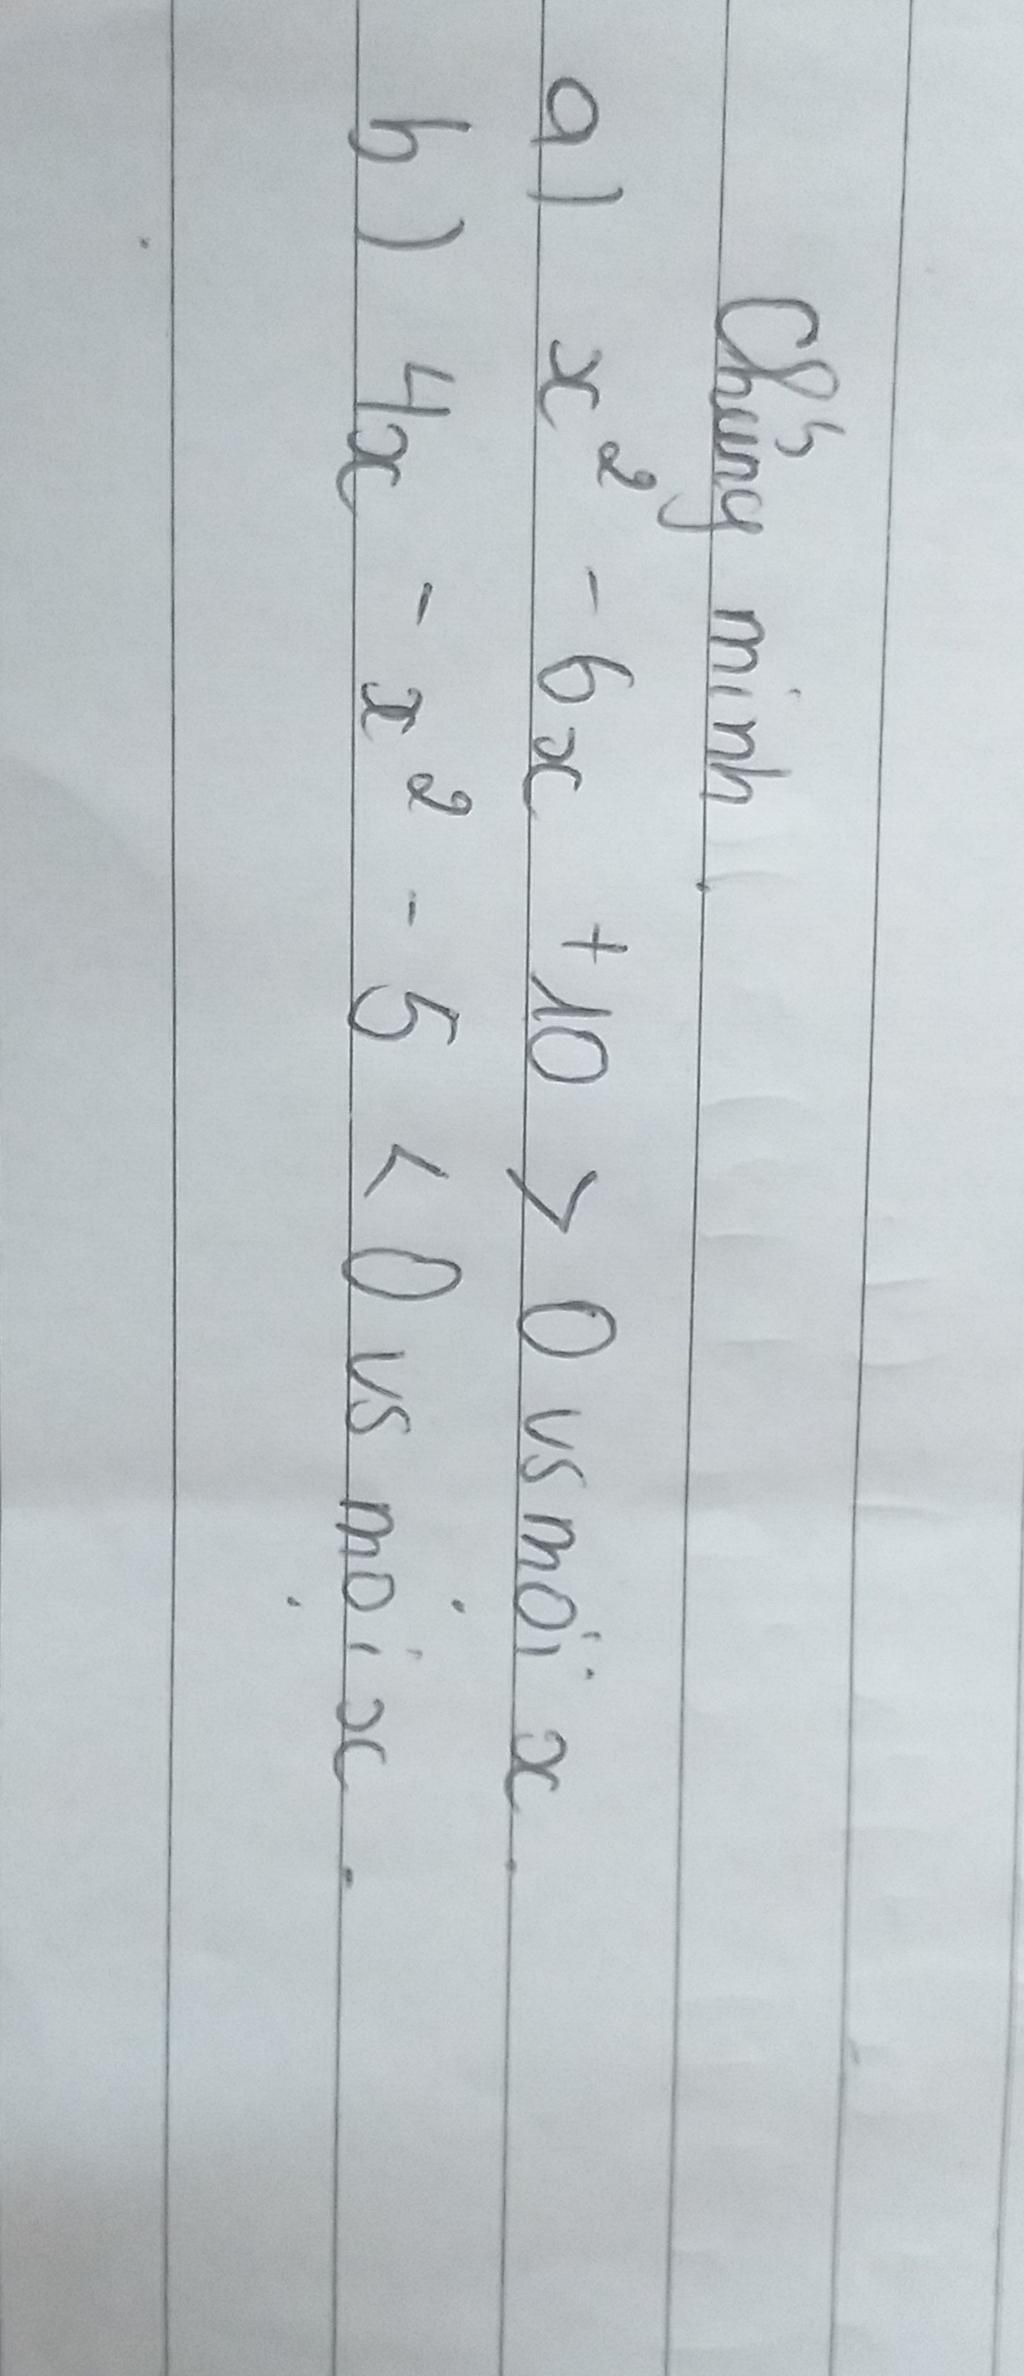 Chứng minh.
a) x² - 6x + 10 > 0 vs mọi x.
b) 4x - x² - 5 < 0 vs mọi x.